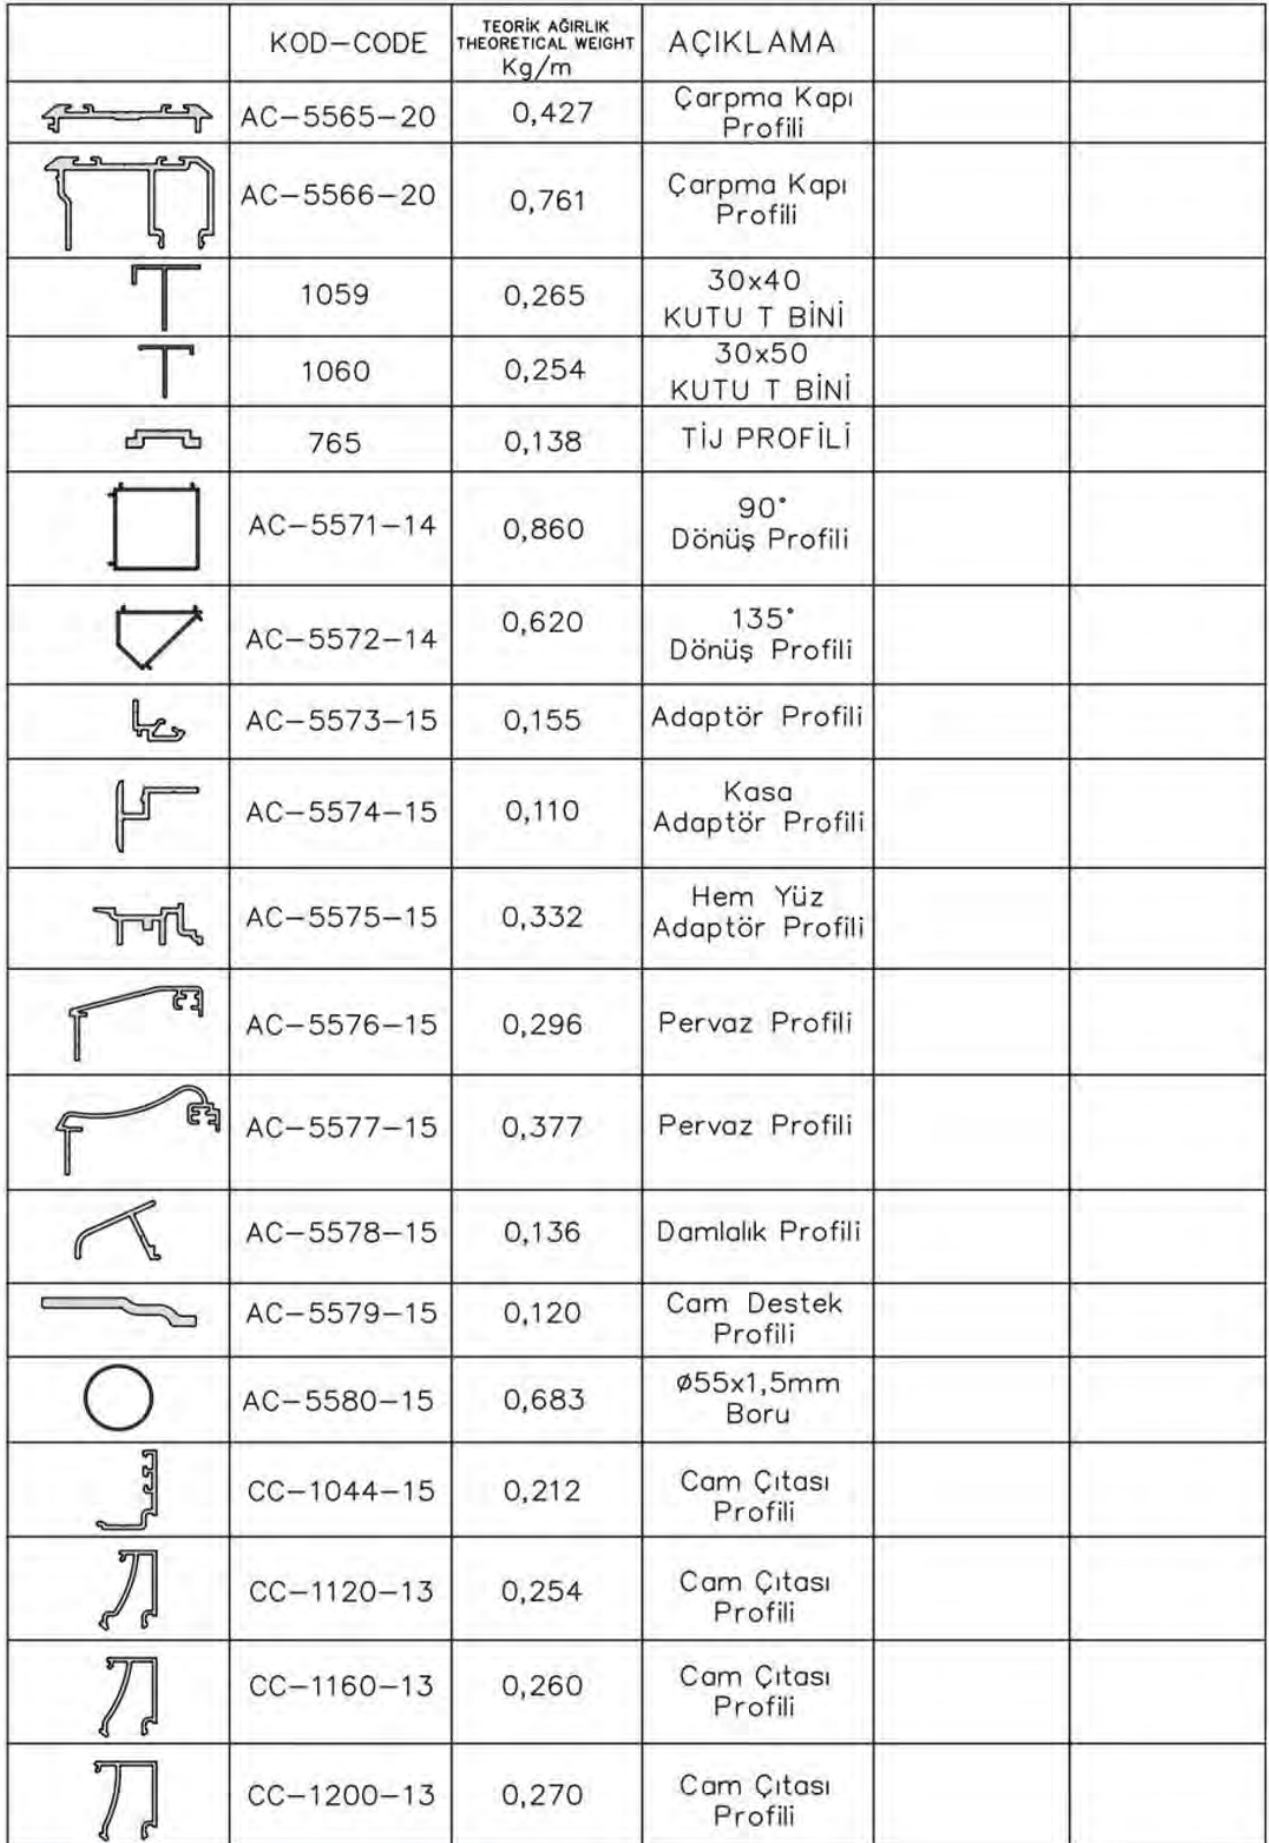 KOD-CODE
TEORİK AĞIRLIK
THEORETICAL WEIGHT
Kg/m
AÇIKLAMA
AC-5565-20
0,427
Çarpma Kapı
Profili
AC-5566-20
0,761
Çarpma Kapı
Profili
1059
0,265
30x40
KUTU T BİNİ
1060
0,254
30x50
KUTU T BİNİ
765
0,138
TİJ PROFİLİ
AC-5571-14
0,860
90°
Dönüş Profili
AC-5572-14
0,620
135°
Dönüş Profili
AC-5573-15
0,155
Adaptör Profili
AC-5574-15
0,110
Kasa
Adaptör Profili
AC-5575-15
0,332
Hem Yüz
Adaptör Profili
AC-5576-15
0,296
Pervaz Profili
AC-5577-15
0,377
Pervaz Profili
AC-5578-15
0,136
Damlalık Profili
AC-5579-15
0,120
Cam Destek
Profili
AC-5580-15
0,683
ø55x1,5mm
Boru
CC-1044-15
0,212
Cam Çıtası
Profili
CC-1120-13
0,254
Cam Çıtası
Profili
CC-1160-13
0,260
Cam Çıtası
Profili
CC-1200-13
0,270
Cam Çıtası
Profili